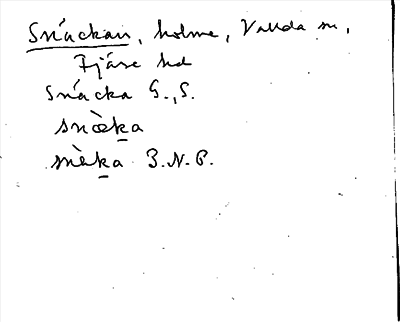 Snäckan, holme, Vallda sn,
Fjäre hd
Snäcka G., S.
snœ̀ka
snèka B.N.P.